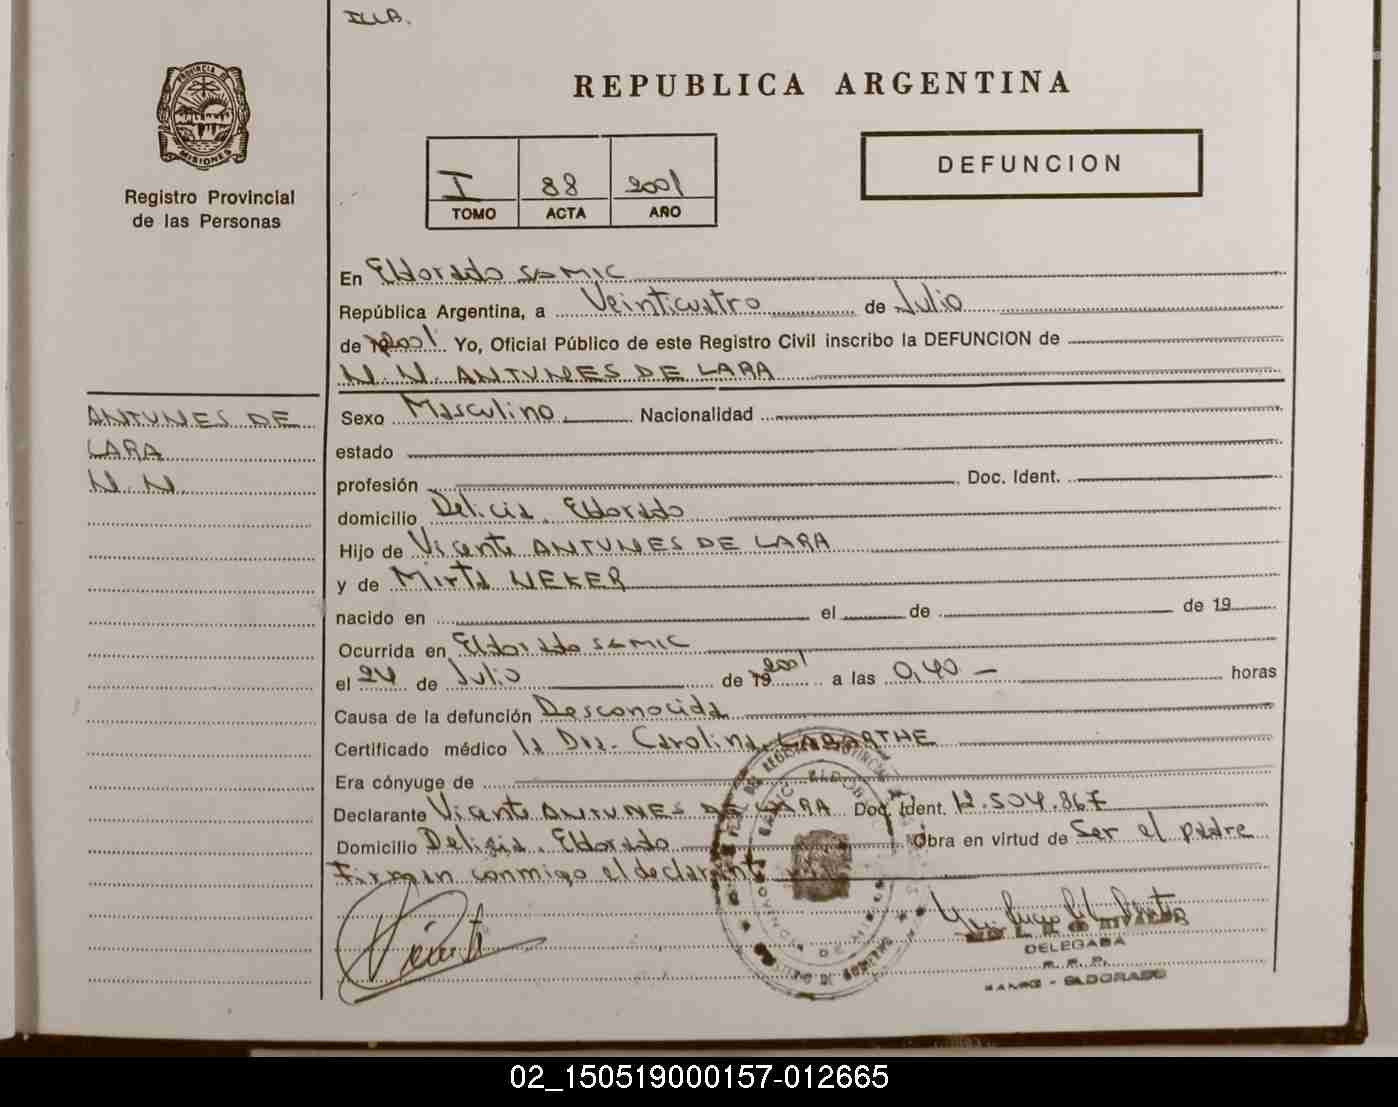 REPUBLICA ARGENTINA
PROVINCIA DE
MISIONES
Registro Provincial
de las Personas
I 88 2001
TOMO ACTA AÑO
DEFUNCION
En Eldorado SAMIC
República Argentina, a Veinticuatro de Julio
de 2001 Yo, Oficial Público de este Registro Civil inscribo la DEFUNCION de
N.N. ANTUNES DE LARA
ANTUNES DE
LARA
N.N.
Sexo Masculino Nacionalidad
estado
profesión Doc. Ident.
domicilio Delicia. Eldorado
Hijo de Vicente ANTUNES DE LARA
y de Mirta NEKER
nacido en el de de 19
Ocurrida en Eldorado SAMIC
el 24 de Julio de 19 2001 a las 0,40 — horas
Causa de la defunción Desconocida
Certificado médico la Dra. Carolina LABARTHE
Era cónyuge de
Declarante Vicente ANTUNES DE LARA Doc. Ident. 12.504.867
Domicilio Delicia. Eldorado Obra en virtud de Ser el padre
Firman conmigo el declarante
Vicente
DELEGADA
R. P. P.
SAMIC - ELDORADO
02_150519000157-012665